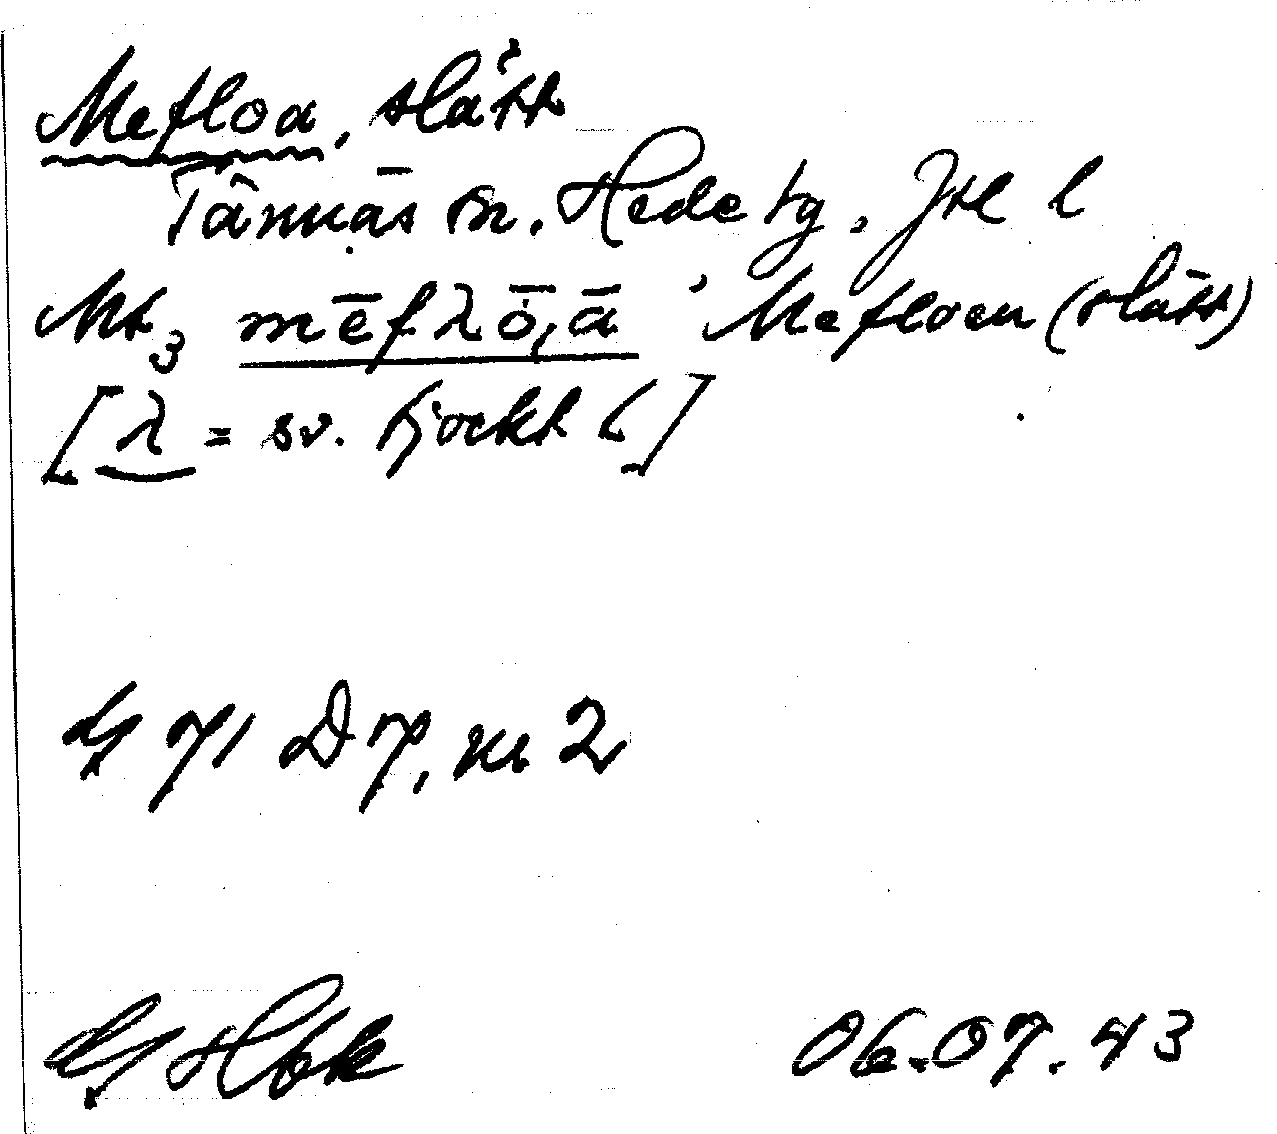 Mefloa, slått
Tännäs sn. Hede tg, Jtl l
Mt3 mēfλō,ā, Mefloen (slått)
[λ = sv. tjockt l]
G 71 D 7, nr 2
G Hbk 06.07.43